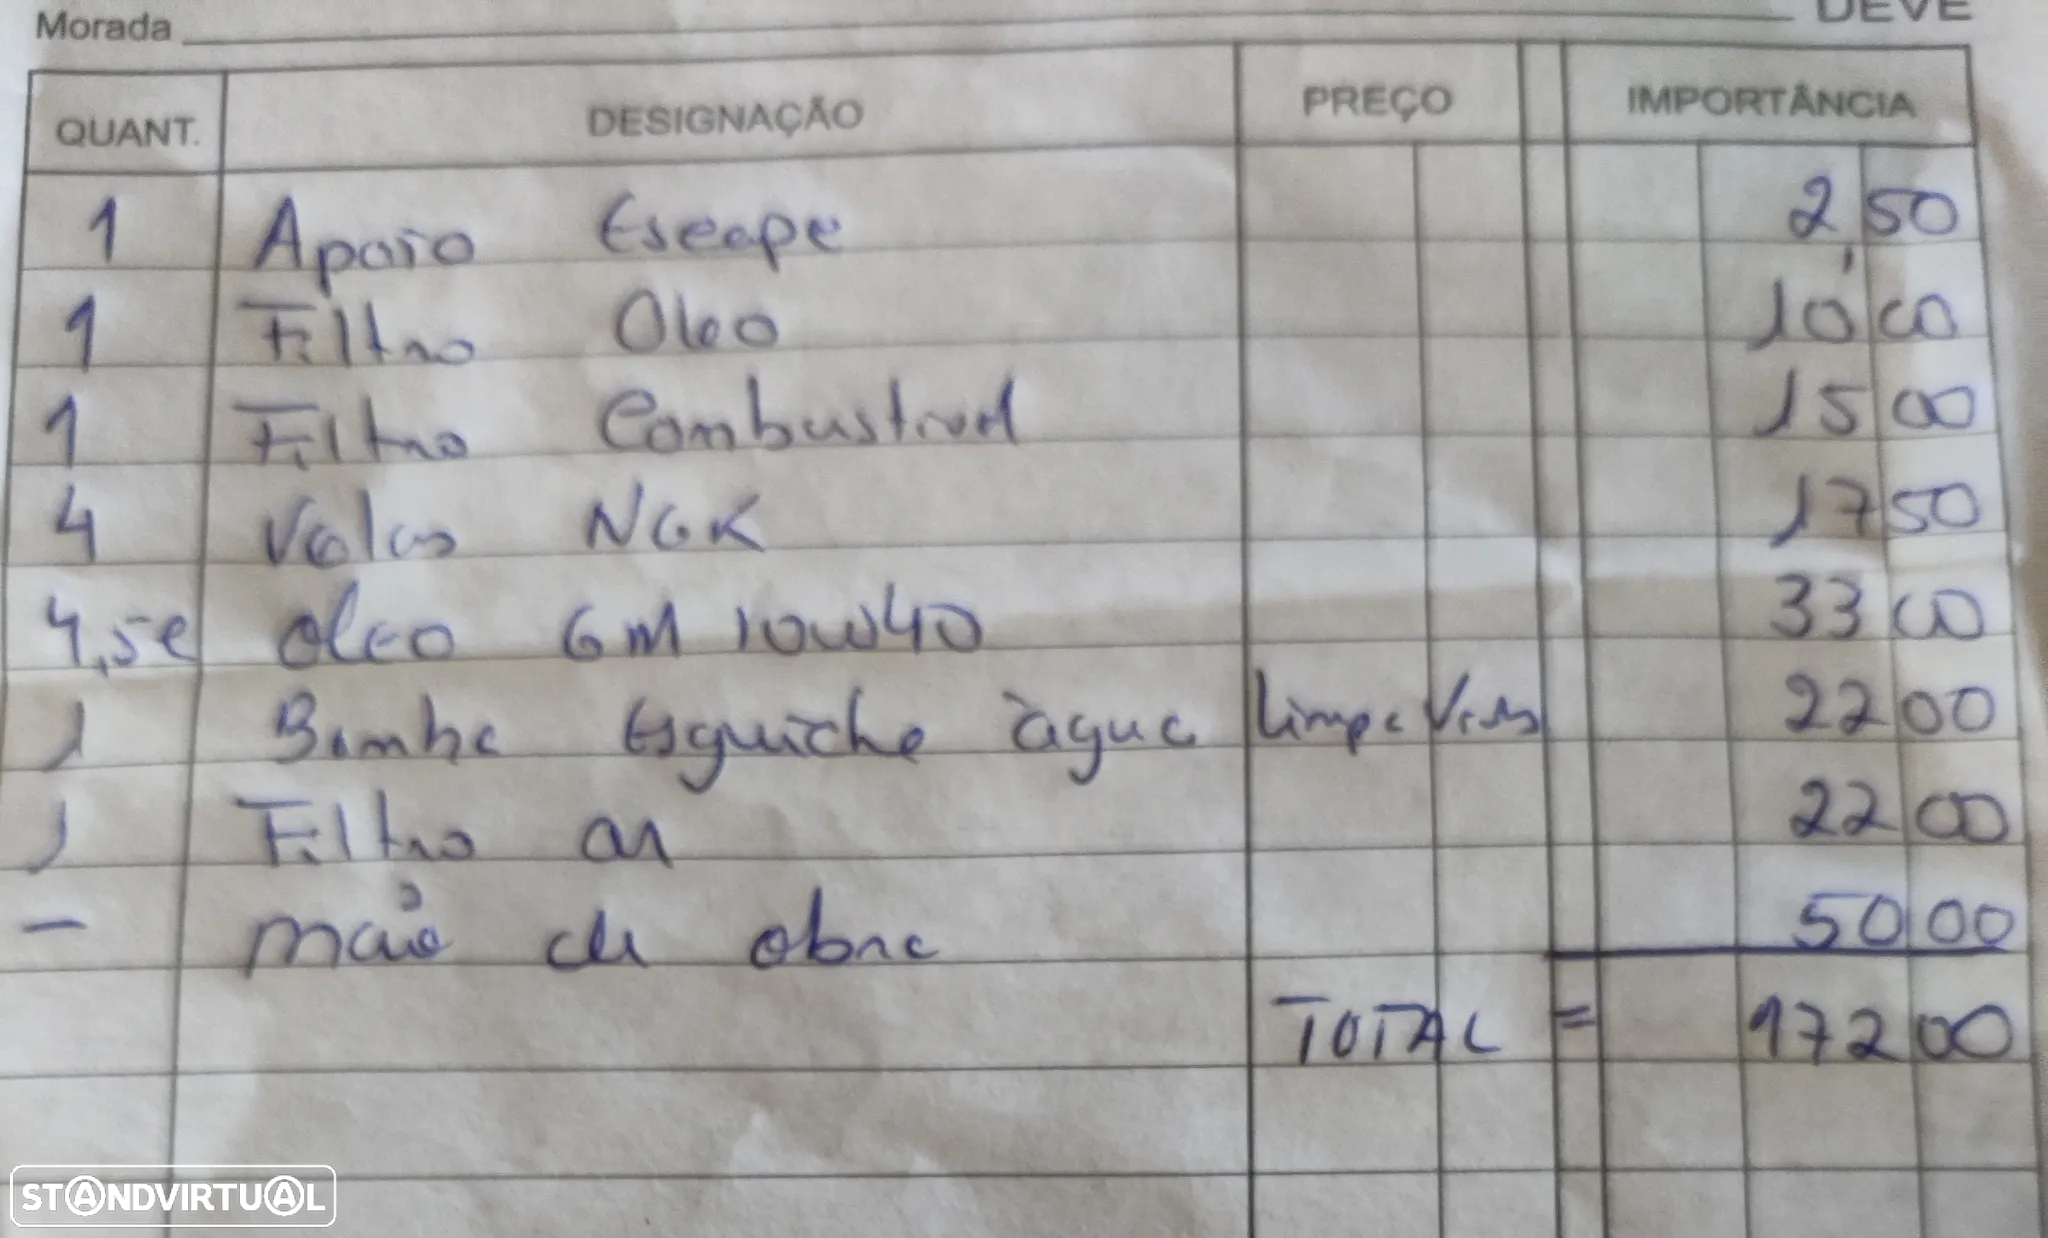 Morada DEVE
QUANT. DESIGNAÇÃO PREÇO IMPORTÂNCIA
1 Apoio Escape 2,50
1 Filtro Oleo 10,00
1 Filtro Combustivel 15 00
4 Velas NGK 17 50
4,5l oleo GM 10W40 33 00
1 Bomba Esguicho àgua limpa Vidros 22 00
1 Filtro ar 22 00
- mão de obra 50 00
TOTAL = 172 00
STANDVIRTUAL